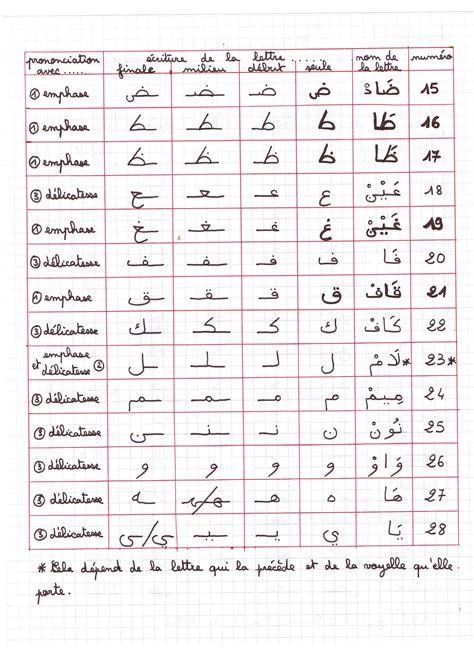 prononciation avec ...... écriture de la lettre ...... nom de la lettre numéro
finale milieu début seule
① emphase ـض ـضـ ضـ ض ضَادْ 15
① emphase ـط ـطـ طـ ط طَا 16
① emphase ـظ ـظـ ظـ ظ ظَا 17
③ délicatesse ـع ـعـ عـ ع عَيْنْ 18
① emphase ـغ ـغـ غـ غ غَيْنْ 19
③ délicatesse ـف ـفـ فـ ف فَا 20
① emphase ـق ـقـ قـ ق قَافْ 21
③ délicatesse ـك ـكـ كـ ك كَافْ 22
emphase et délicatesse ② ـل ـلـ لـ ل لَامْ* 23*
③ délicatesse ـم ـمـ مـ م مِيمْ 24
③ délicatesse ـن ـنـ نـ ن نُونْ 25
③ délicatesse و و و و وَاوْ 26
③ délicatesse ـه ـهـ/ـهـ هـ ه هَا 27
③ délicatesse ى/ـى ـيـ يـ ي يَا 28
* Cela dépend de la lettre qui la précède et de la voyelle qu'elle
porte.